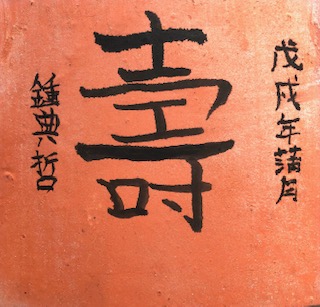 戊戌年蒲月
壽
鍾典哲